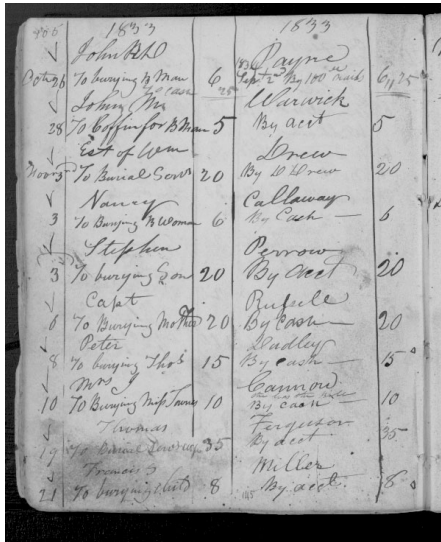 1833 1833
John Payne
Octr 26 To burying B Man 6
To Cash 25 1834 Sept 2 By 6,25
John M Warwick
28 To Coffin for B Man 5 By acct 5
Est of Wm Drew
Novr 3 To Burial Serv 20 By D Drew 20
Nancy Callaway
3 To Burying B Woman 6 By Cash 6
Stephen Perrow
3 To burying Son 20 By acct 20
Capt
6 To Burying Mother 20 By Cash 20
Peter Dudley
8 To burying Thos 15 By Cash 15
Mrs
10 To Burying Miss 10 By Cash 10
Thomas Ferguson
19 To Burial 35 By acct 35
Francis Miller
21 To burying 8 By acct 8